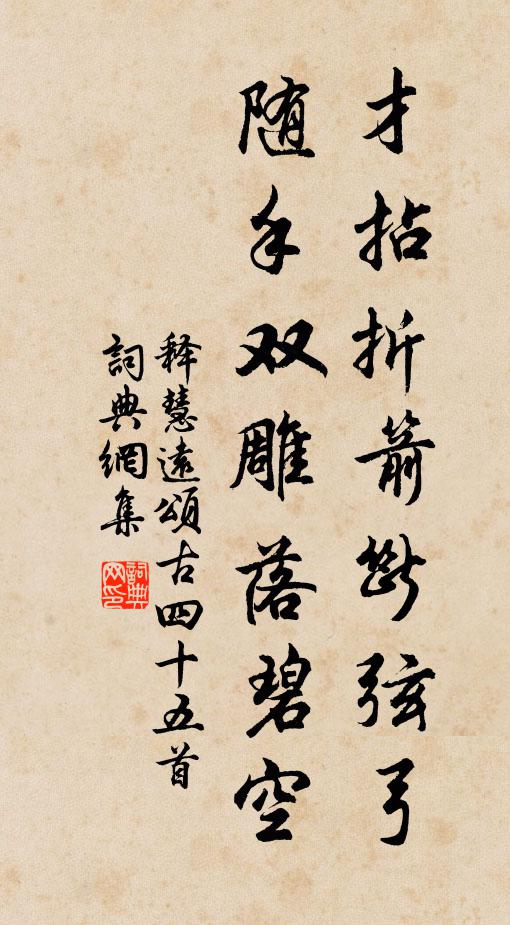 才拈折箭断弦弓
随手双雕落碧空
释慧遠頌古四十五首
詞典網集
詞典网印